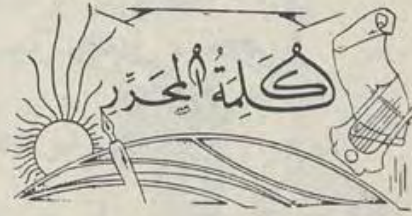 كَلِمَةُ المحَرِّرِ